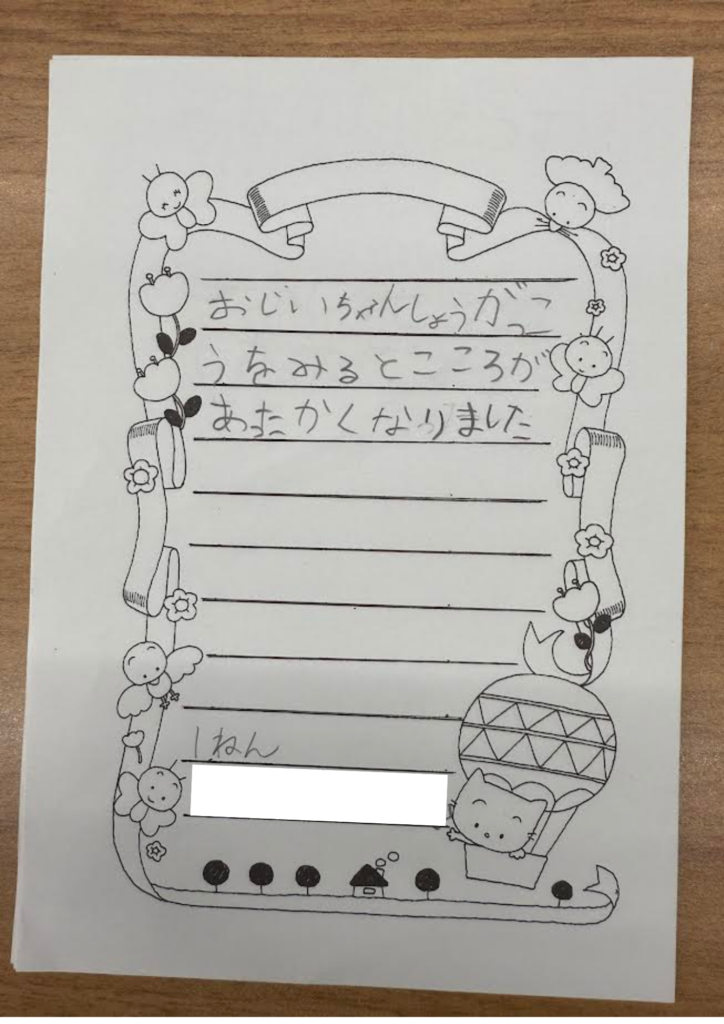 おじいちゃんしょうがっこ
うをみるとこころが
あったかくなりました
1ねん